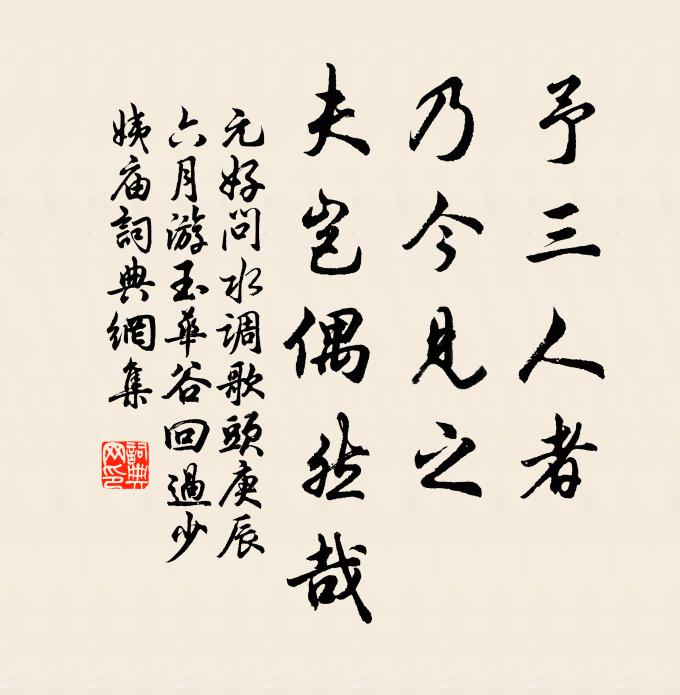 予三人者
乃今見之
夫岂偶然哉
元好问水调歌頭庚辰
六月游玉華谷回過少
姨庙詞典網集
詞典
网印